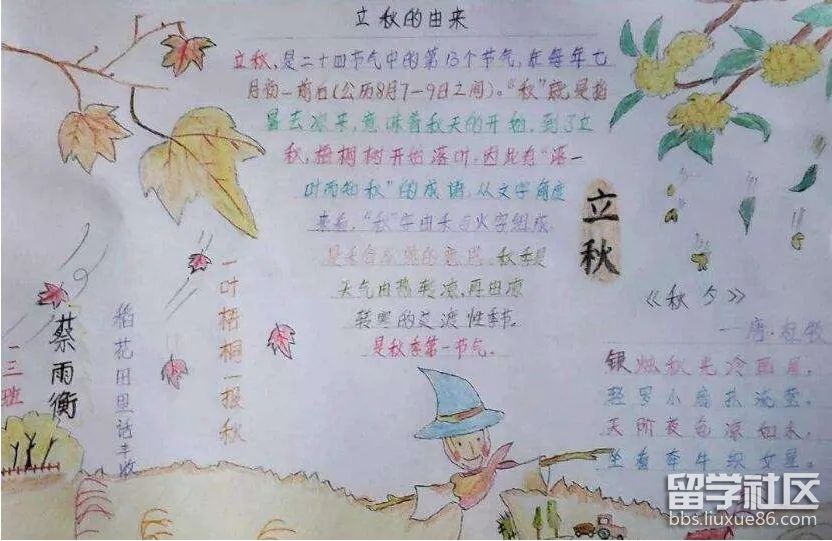 立秋的由来
立秋,是二十四节气中的第13个节气,在每年七
月初一前后(公历8月7—9日之间)。“秋”就是指
暑去凉来,意味着秋天的开始。到了立
秋,梧桐树开始落叶,因此有“落一
叶而知秋”的成语。从文字角度
来看,“秋”字由禾与火字组成,
是禾谷成熟的意思。秋季是
天气由热转凉,再由凉
转寒的交渡性季节。
是秋季第一节气。
立秋
一叶梧桐一报秋
稻花田里话丰收
蔡雨衡
一三班
《秋夕》
—唐·杜牧
银烛秋光冷画屏,
轻罗小扇扑流萤。
天阶夜色凉如水,
坐看牵牛织女星。
留学社区
bbs.liuxue86.com